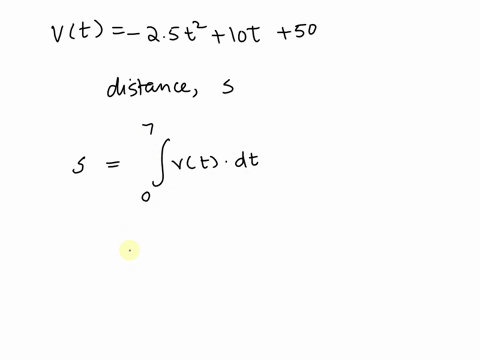 V(t) = - 2.5t² + 10t + 50
distance, s
s = ∫₀⁷ v(t) · dt